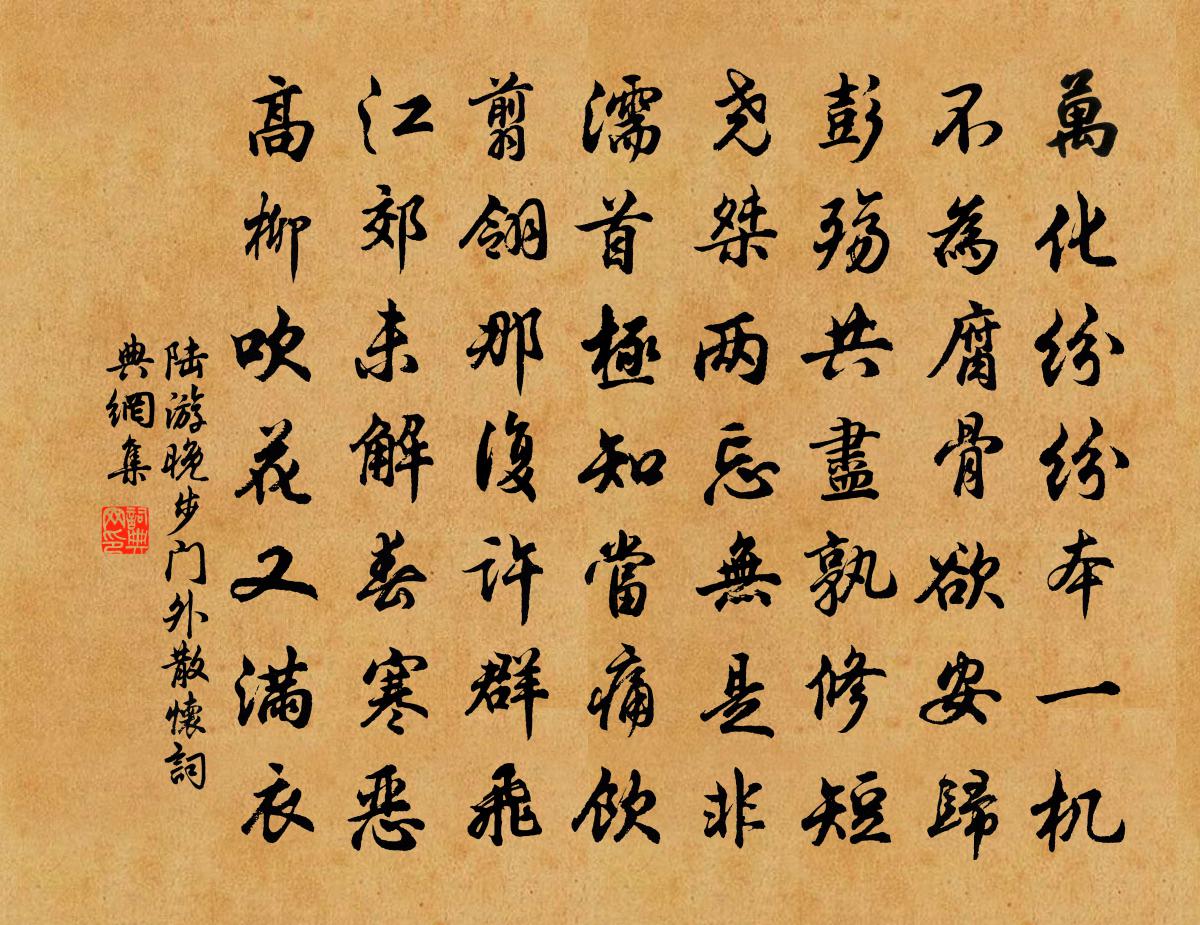 萬化紛紛本一机
不為腐骨欲安歸
彭殤共盡孰修短
尧桀两忘無是非
濡首極知當痛飲
翦翎那復許群飛
江郊未解春寒惡
高柳吹花又滿衣
陆游晚步门外散懷詞
典網集
詞典
网印